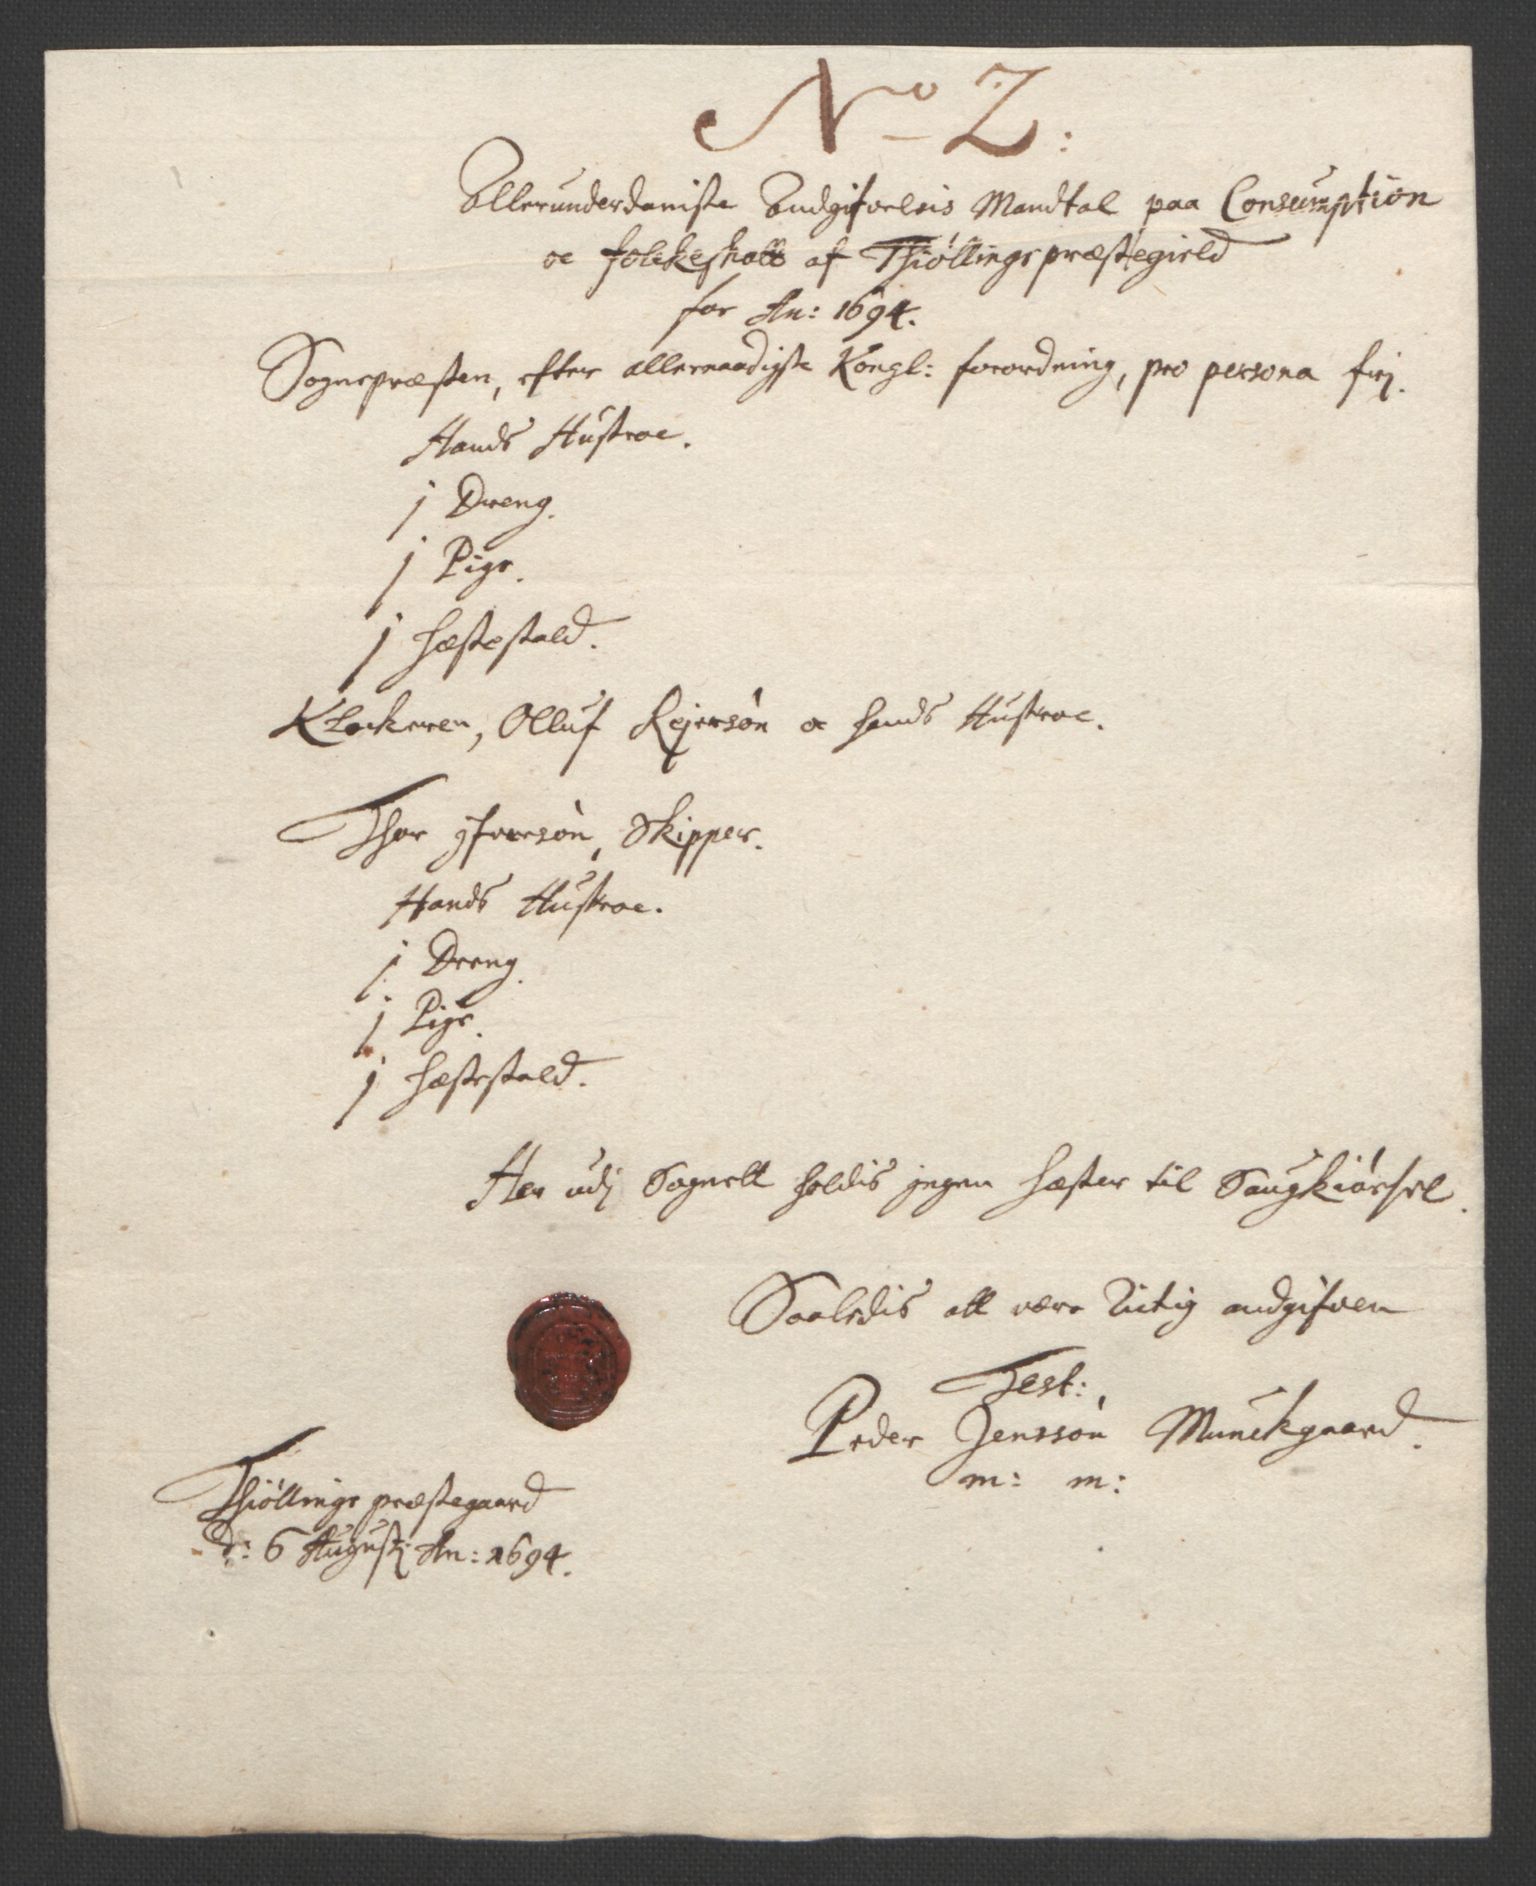 No 2:
Allerunderdaniste Andgifvelsis Mandtal paa Consumption
oc folckeskatt af Thiøllings præstegield
for An: 1694.
Sognepræsten, efter allernaadigste Kongl: forordning, pro persona frj.
Hands Hustroe.
j Dreng.
j Pige.
j hæstestald.
Klockeren, Olluf Rejersøn oc hands Hustroe.
Thor Ifversøn, Skipper.
Hands Hustroe.
j Dreng.
j Pige.
j hæstestald.
Her udj Sognett holdis jngen hæster til Saugkiørsel.
Saaledis att være rictig andgifven
Test:
Peder Jenssøn Munckgaard.
m: m:
Thiøllings præstegaard
d: 6 Augustj An: 1694.